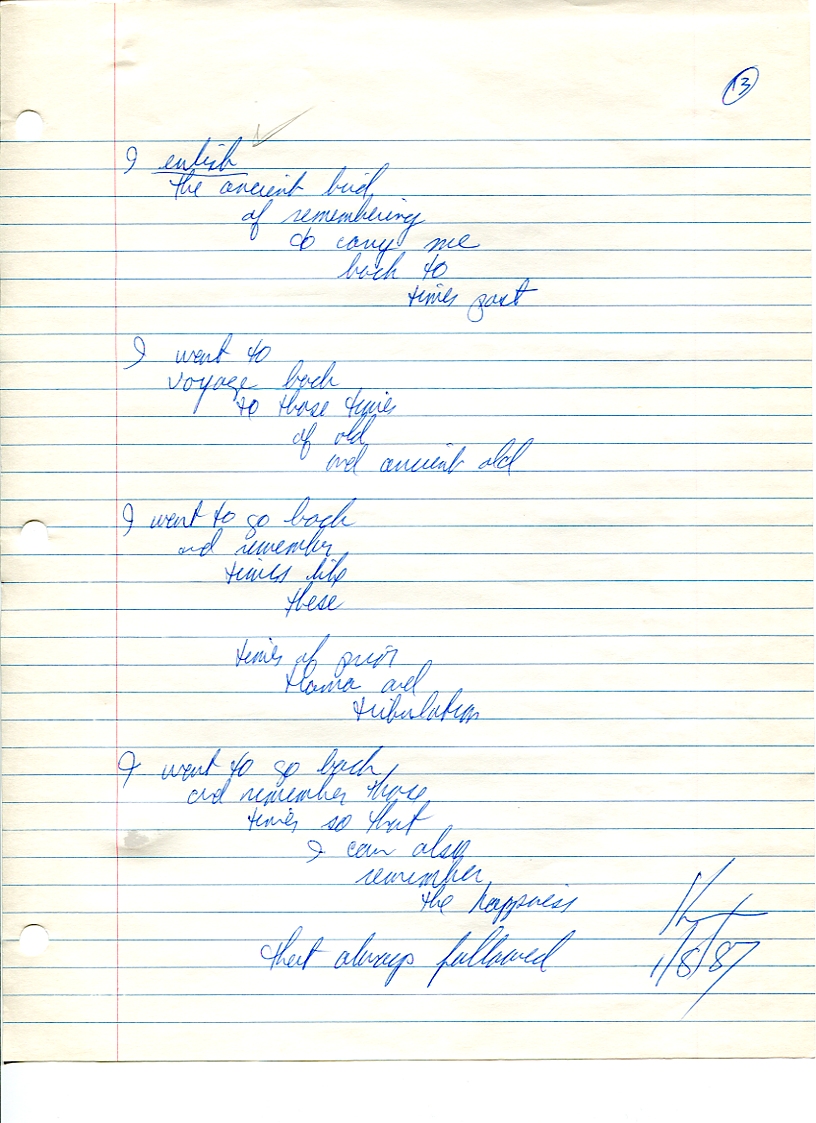 13
I enlish
the ancient bird
of remembering
to carry me
back to
times past
I want to
voyage back
to those times
of old
and ancient old
I want to go back
and remember
times like
these
times of prior
trama and
tribulation
I want to go back
and remember those
times so that
I can also
remember
the happness
that always followed
1/8/87